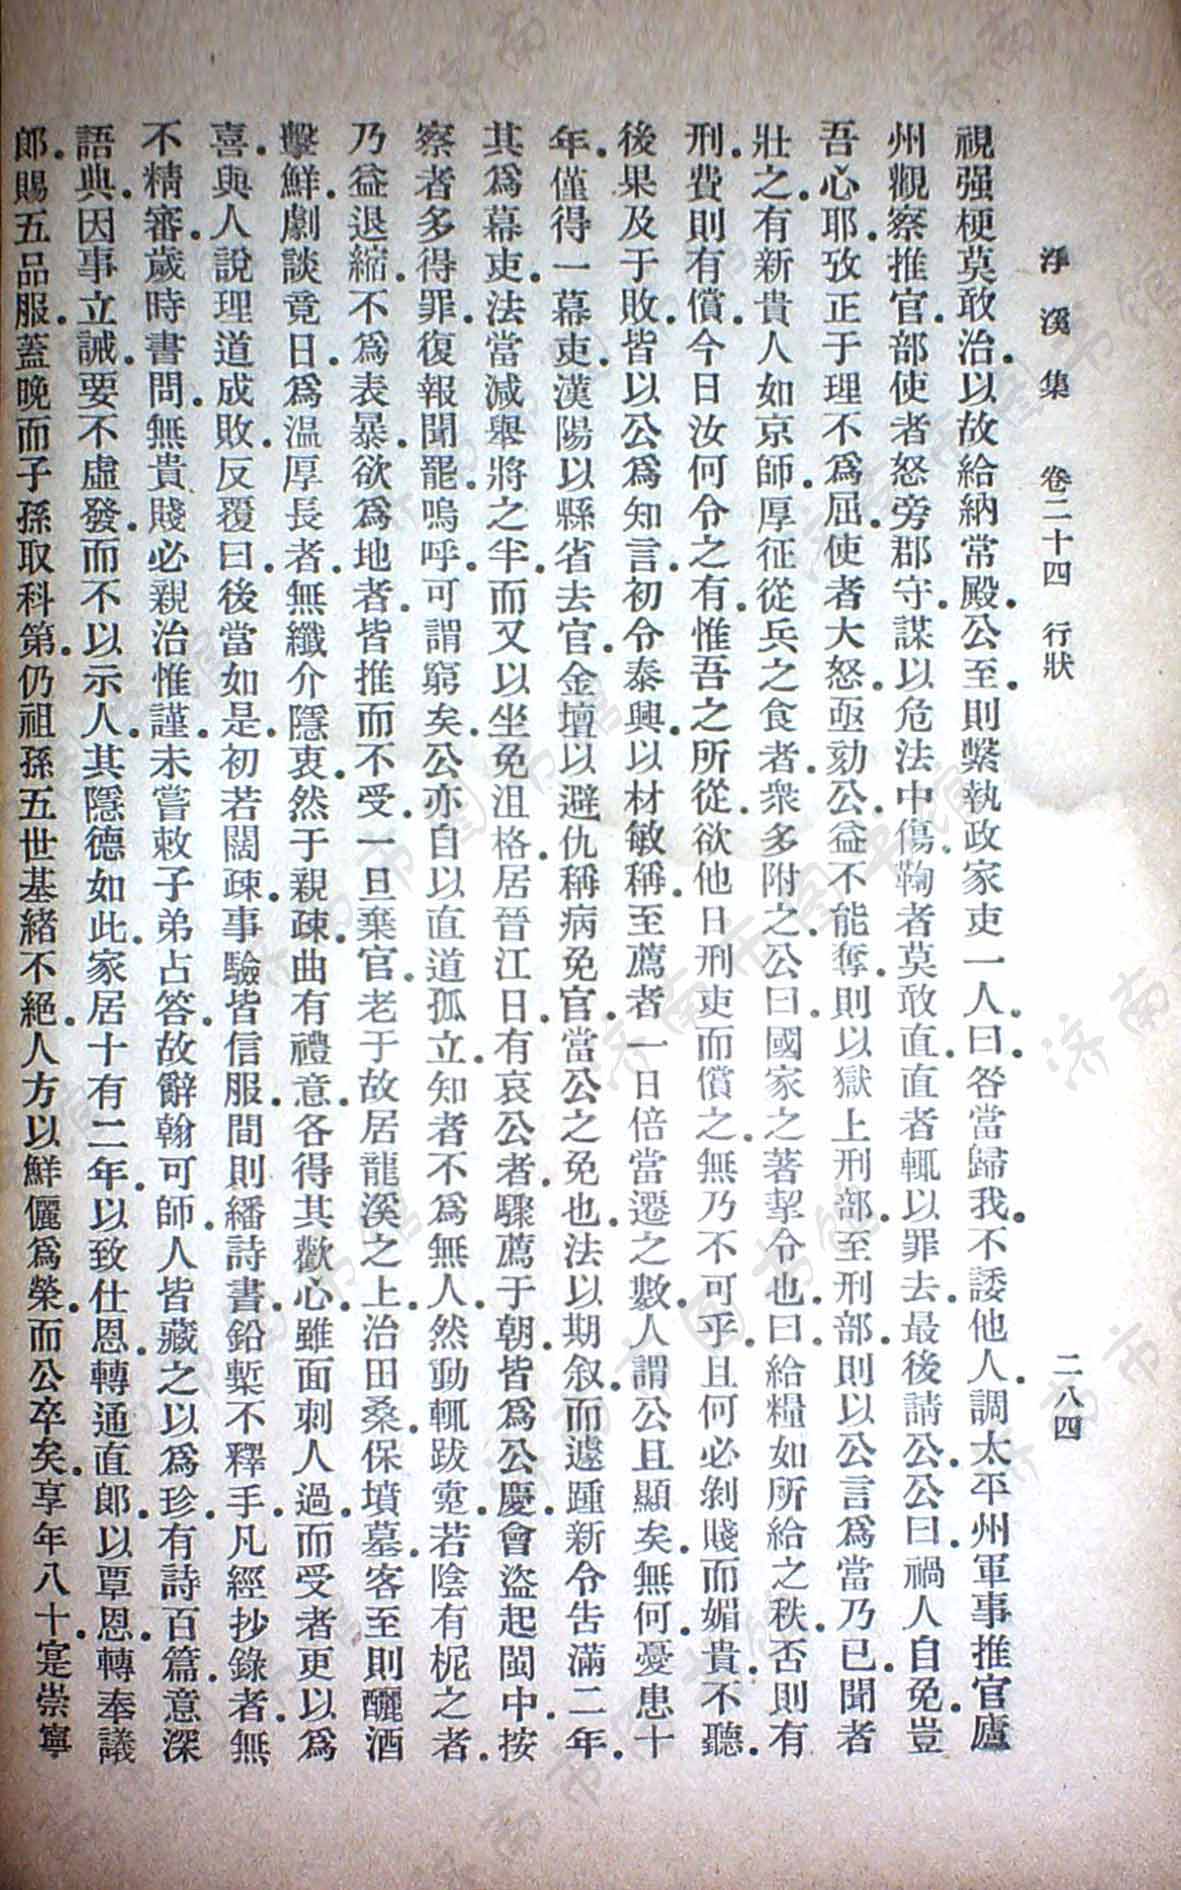 浮溪集　卷二十四　行狀　二八四
視强梗莫敢治。以故給納常殿。公至。則繫執政家吏一人。曰。咎當歸我。不諉他人。調太平州軍事推官。廬
州觀察推官。部使者怒旁郡守。謀以危法中傷。鞠者莫敢直。直者輒以罪去。最後請公。公曰。禍人自免。豈
吾心耶。攷正于理。不爲屈。使者大怒。亟劾公。益不能奪。則以獄上刑部。至刑部。則以公言爲當。乃已。聞者
壯之。有新貴人如京師。厚征從兵之食者。衆多附之。公曰。國家之著挈令也。曰。給糧如所給之秩。否則有
刑。費則有償。今日汝何令之有。惟吾之所從。欲他日刑吏而償之。無乃不可乎。且何必剝賤而媚貴。不聽。
後果及于敗。皆以公爲知言。初令泰興。以材敏稱。至薦者一日倍當遷之數。人謂公且顯矣。無何憂患十
年。僅得一幕吏。漢陽以縣省去官。金壇以避仇稱病免官。當公之免也。法以期叙。而遽踵新令。告滿二年。
其爲幕吏。法當減舉將之半。而又以坐免沮格。居晉江日。有哀公者。驟薦于朝。皆爲公慶。會盜起閩中。按
察者多得罪。復報聞罷。嗚呼。可謂窮矣。公亦自以直道孤立。知者不爲無人。然動輒跋疐。若陰有柅之者。
乃益退縮。不爲表暴。欲爲地者。皆推而不受。一旦棄官。老于故居龍溪之上。治田桑。保墳墓。客至則釃酒
擊鮮。劇談竟日。爲温厚長者。無纖介隱衷。然于親疎。曲有禮意。各得其歡心。雖面刺人過。而受者更以爲
喜。與人說理道成敗。反覆曰。後當如是。初若闊疎。事驗皆信服。間則繙詩書。鉛槧不釋手。凡經抄錄者。無
不精審。歲時書問。無貴賤必親治惟謹。未嘗敕子弟占答。故辭翰可師。人皆藏之以爲珍。有詩百篇。意深
語典。因事立誡。要不虛發。而不以示人。其隱德如此。家居十有二年。以致仕恩。轉通直郎。以覃恩。轉奉議
郎。賜五品服。蓋晚而子孫取科第。仍祖孫五世基緒不絕。人方以鮮儷爲榮。而公卒矣。享年八十。寔崇寧